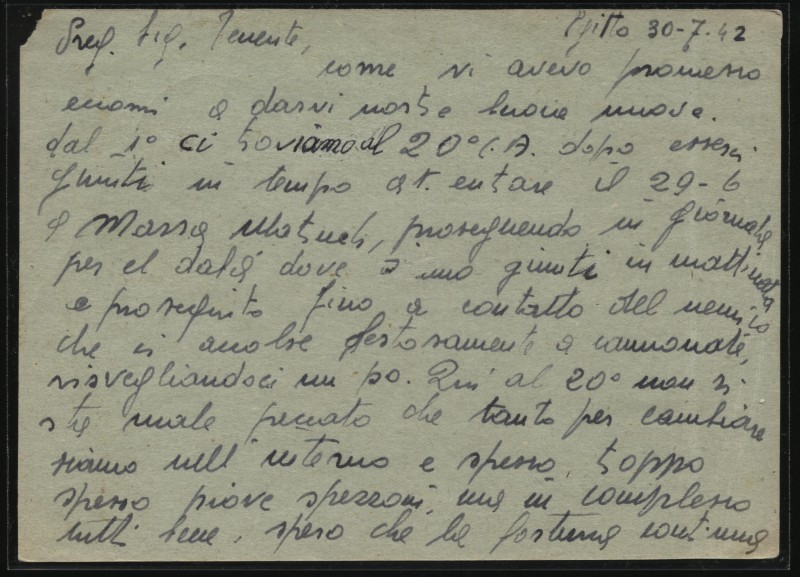 Egitto 30-7-42
Preg. Sig. Tenente,
come vi avevo promesso
eccomi a darvi nostre buone nuove.
dal 1° ci troviamo al 20° C.A. dopo esserci
giunti in tempo at. entrare il 29-6
a Marsa Matruh, proseguendo in giornata
per el dabà dove siamo giunti in mattinata
e proseguito fino a contatto del nemico
che ci accolse festosamente a cannonate,
risvegliandoci un po. Qui al 20° non si
sta male peccato che tanto per cambiare
siamo nell'interno e spesso, troppo
spesso piove spezzoni, ma in complesso
tutti bene, spero che la fortuna continua